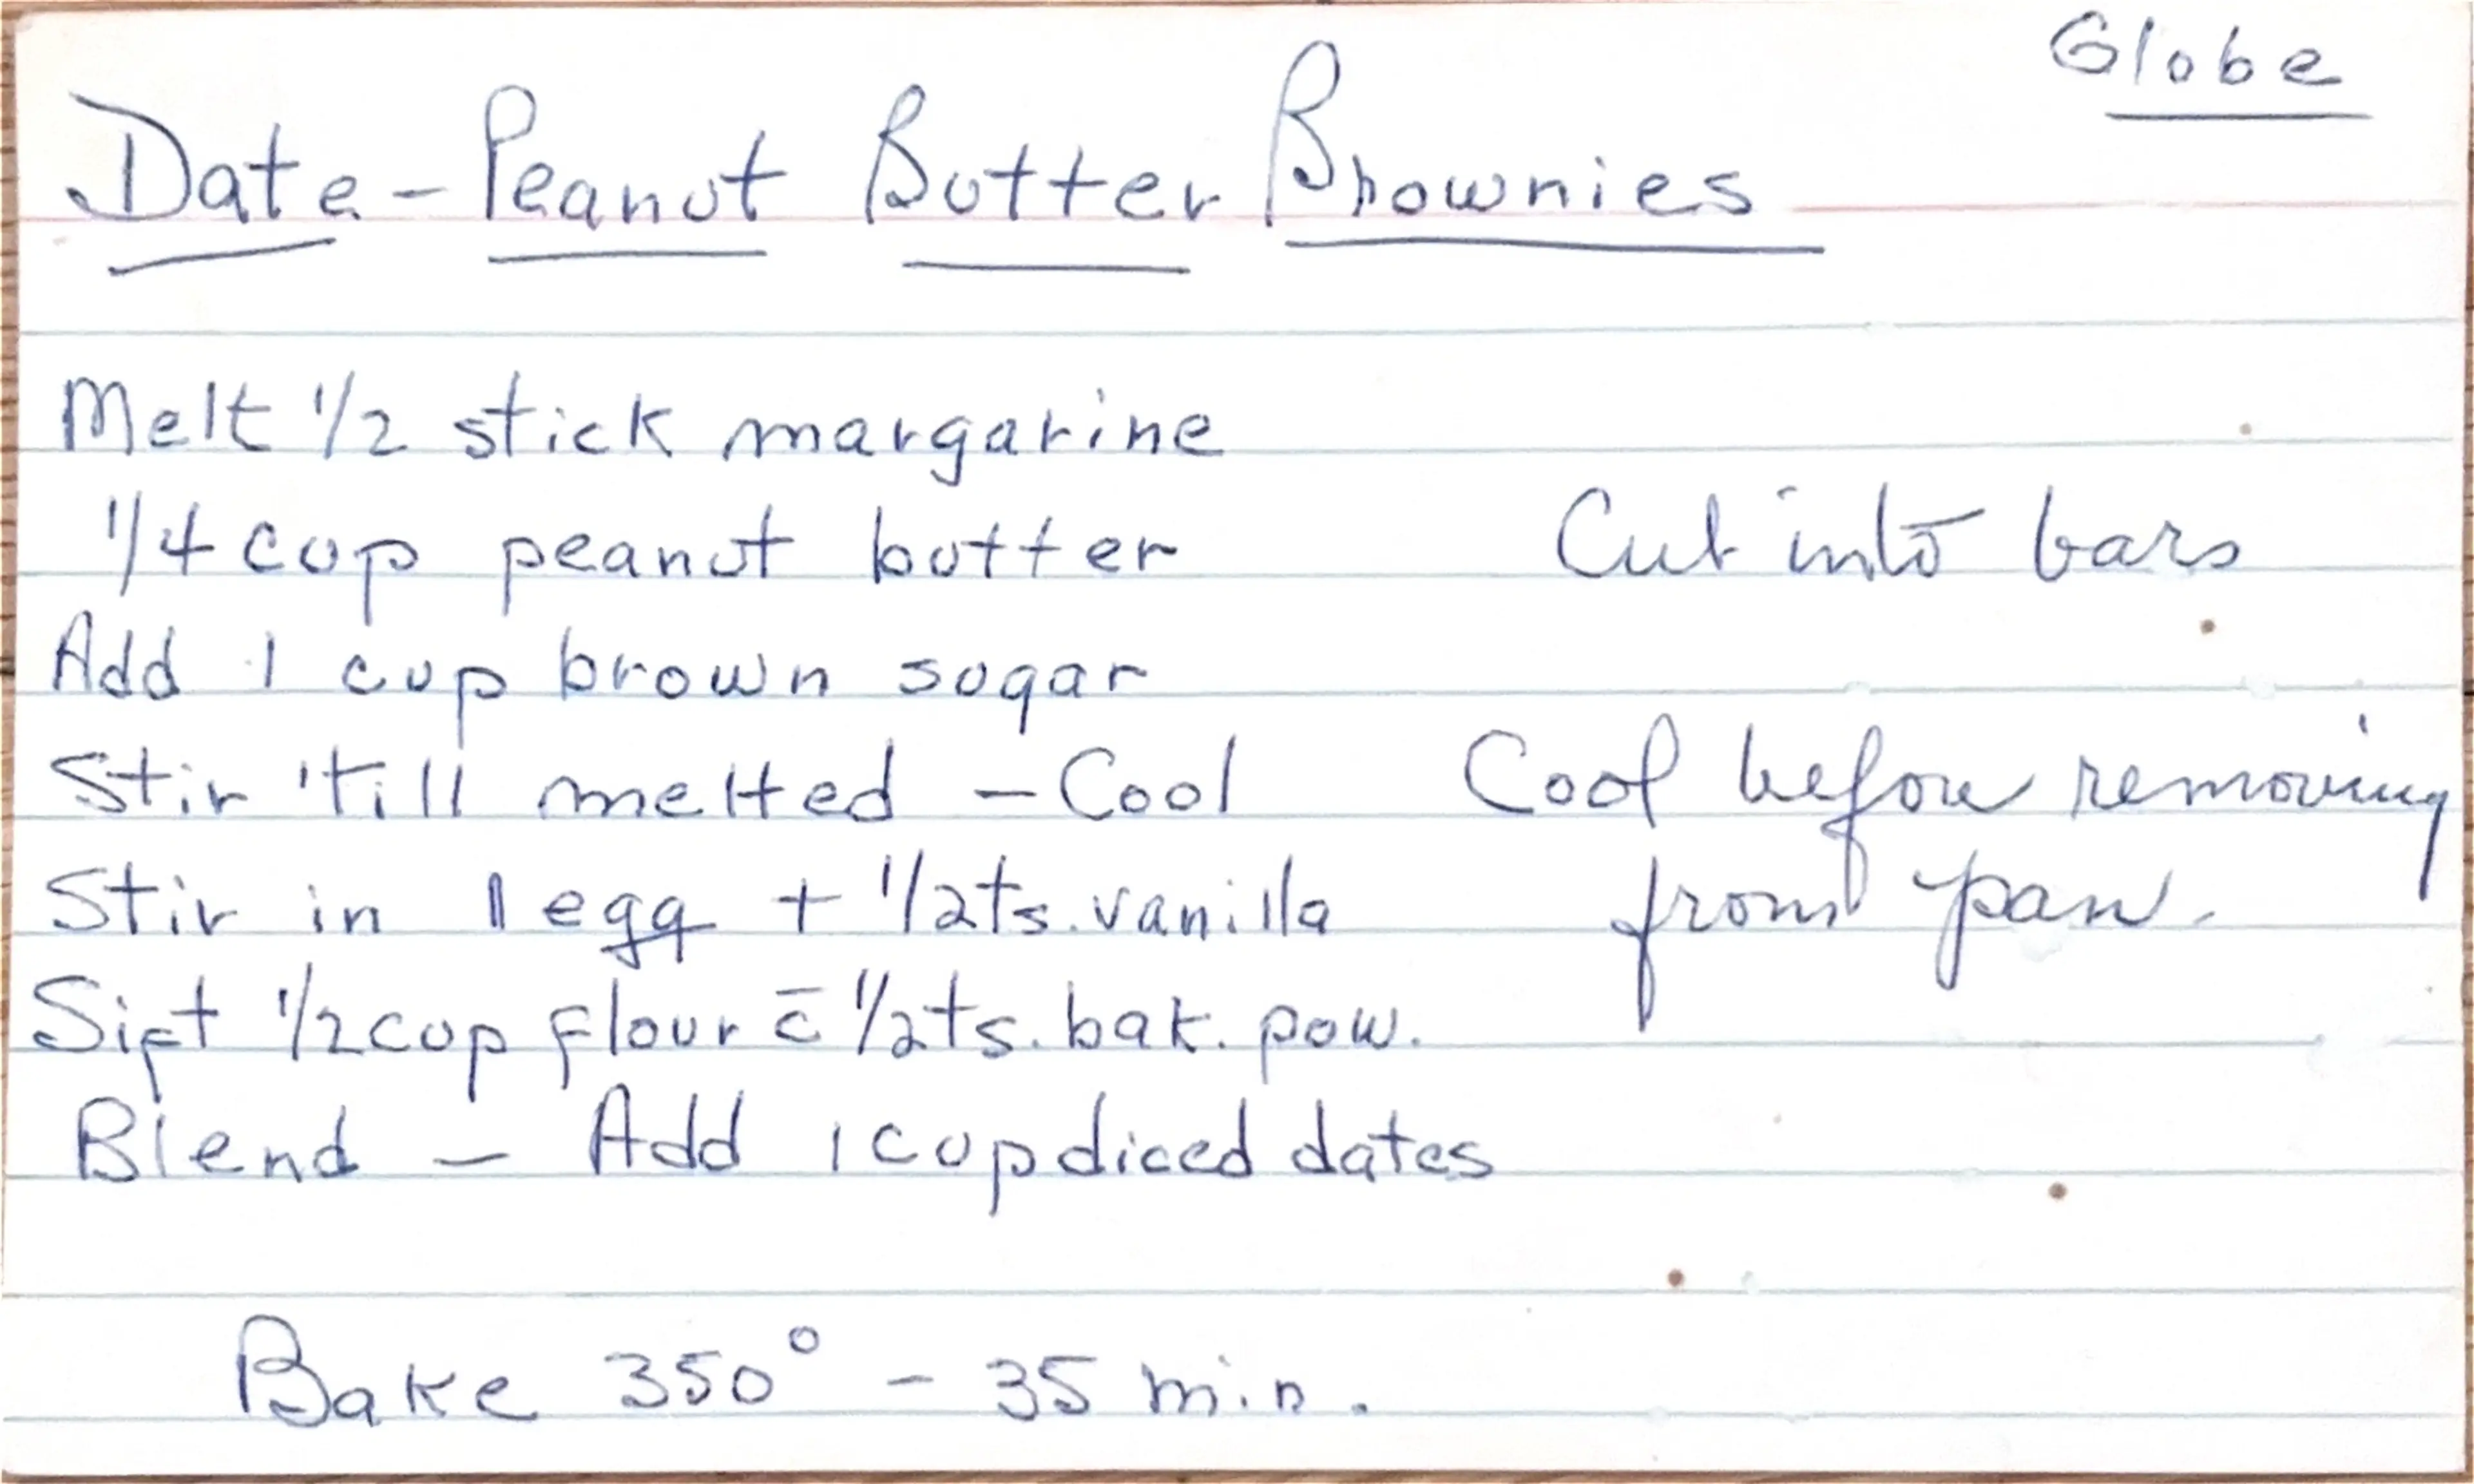 Globe
Date-Peanut Butter Brownies
Melt 1/2 stick margarine
1/4 cup peanut butter
Add 1 cup brown sugar
Stir 'till melted - Cool
Stir in 1 egg + 1/2 ts. vanilla
Sift 1/2 cup flour c̄ 1/2 ts. bak. pow.
Blend - Add 1 cup diced dates
Bake 350° - 35 min.
Cut into bars
Cool before removing
from pan.